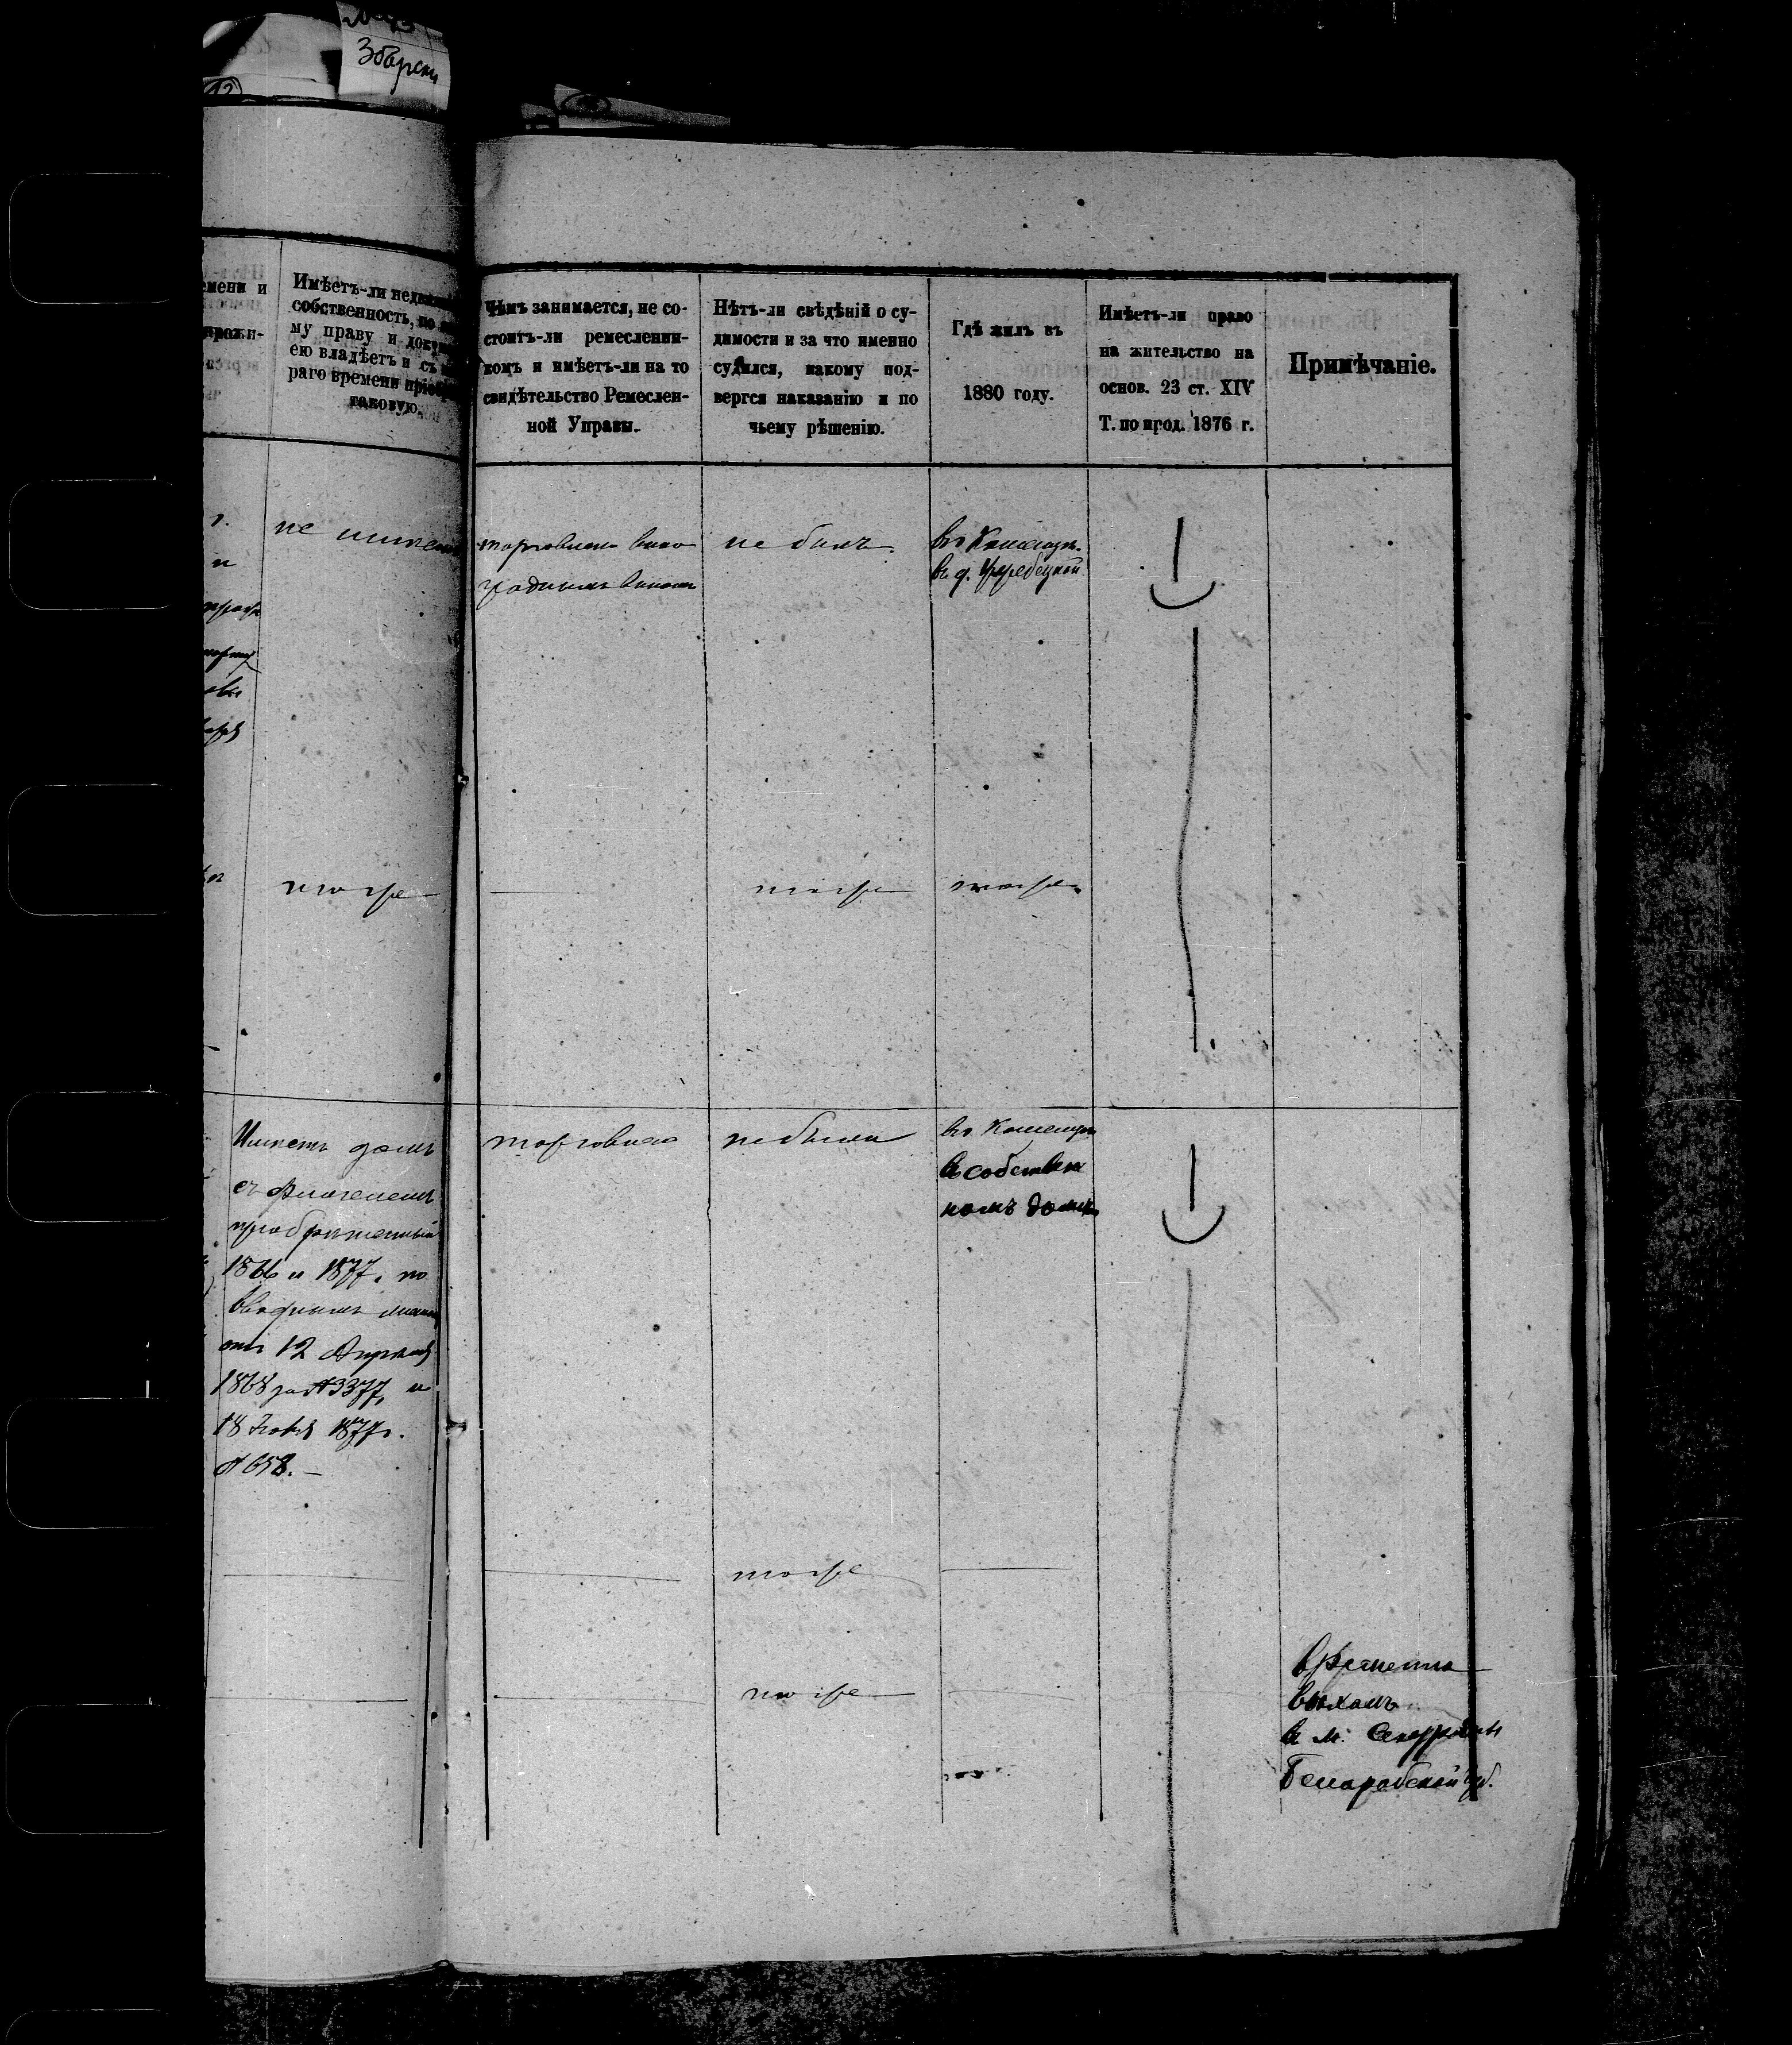 Збарски
12
емени и
прожи-
Имѣетъ-ли
собственность, по
му праву и
ею владѣетъ и съ
раго времени
таковую.
Чѣмъ занимается, не со-
стоитъ-ли ремесленни-
комъ и имѣетъ-ли на то
свидѣтельство Ремеслен-
ной Управы.
Нѣтъ-ли свѣдѣній о су-
димости и за что именно
судился, какому под-
вергся наказанію и по
чьему рѣшенію.
Гдѣ жилъ въ
1880 году.
Имѣетъ-ли право
на жительство на
основ. 23 ст. XIV
Т. по прод. 1876 г.
Примѣчаніе.
не имѣетъ
торговлею вино
граднымъ виномъ
не былъ.
въ
въ д.
тоже
тоже
тоже
Имѣетъ домъ
съ флигелемъ
пріобрѣтенный
1866 и 1877. по
вводнымъ
отъ 12 Апрѣля
1868 за № 3377, и
18 1877 г.
№ 658. —
торговлею
не были
въ
въ собствен
номъ домѣ
тоже
тоже
временно
выѣхалъ
въ м.
Бессарабской губ.